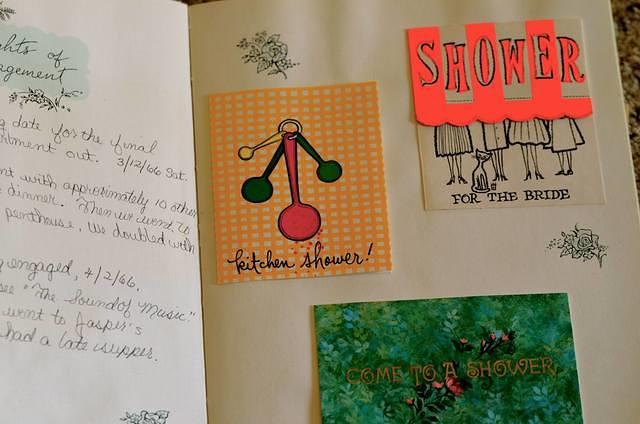 hts of
agement
g date for the final
tment out. 3/12/66 Sat.
nt with approximately 10 other
dinner. Then we went to
penthouse, We doubled with
g engaged, 4/2/66.
see "The Sound of Music."
went to Jasper's
had a late supper.
SHOWER
FOR THE BRIDE
kitchen shower!
COME TO A SHOWER